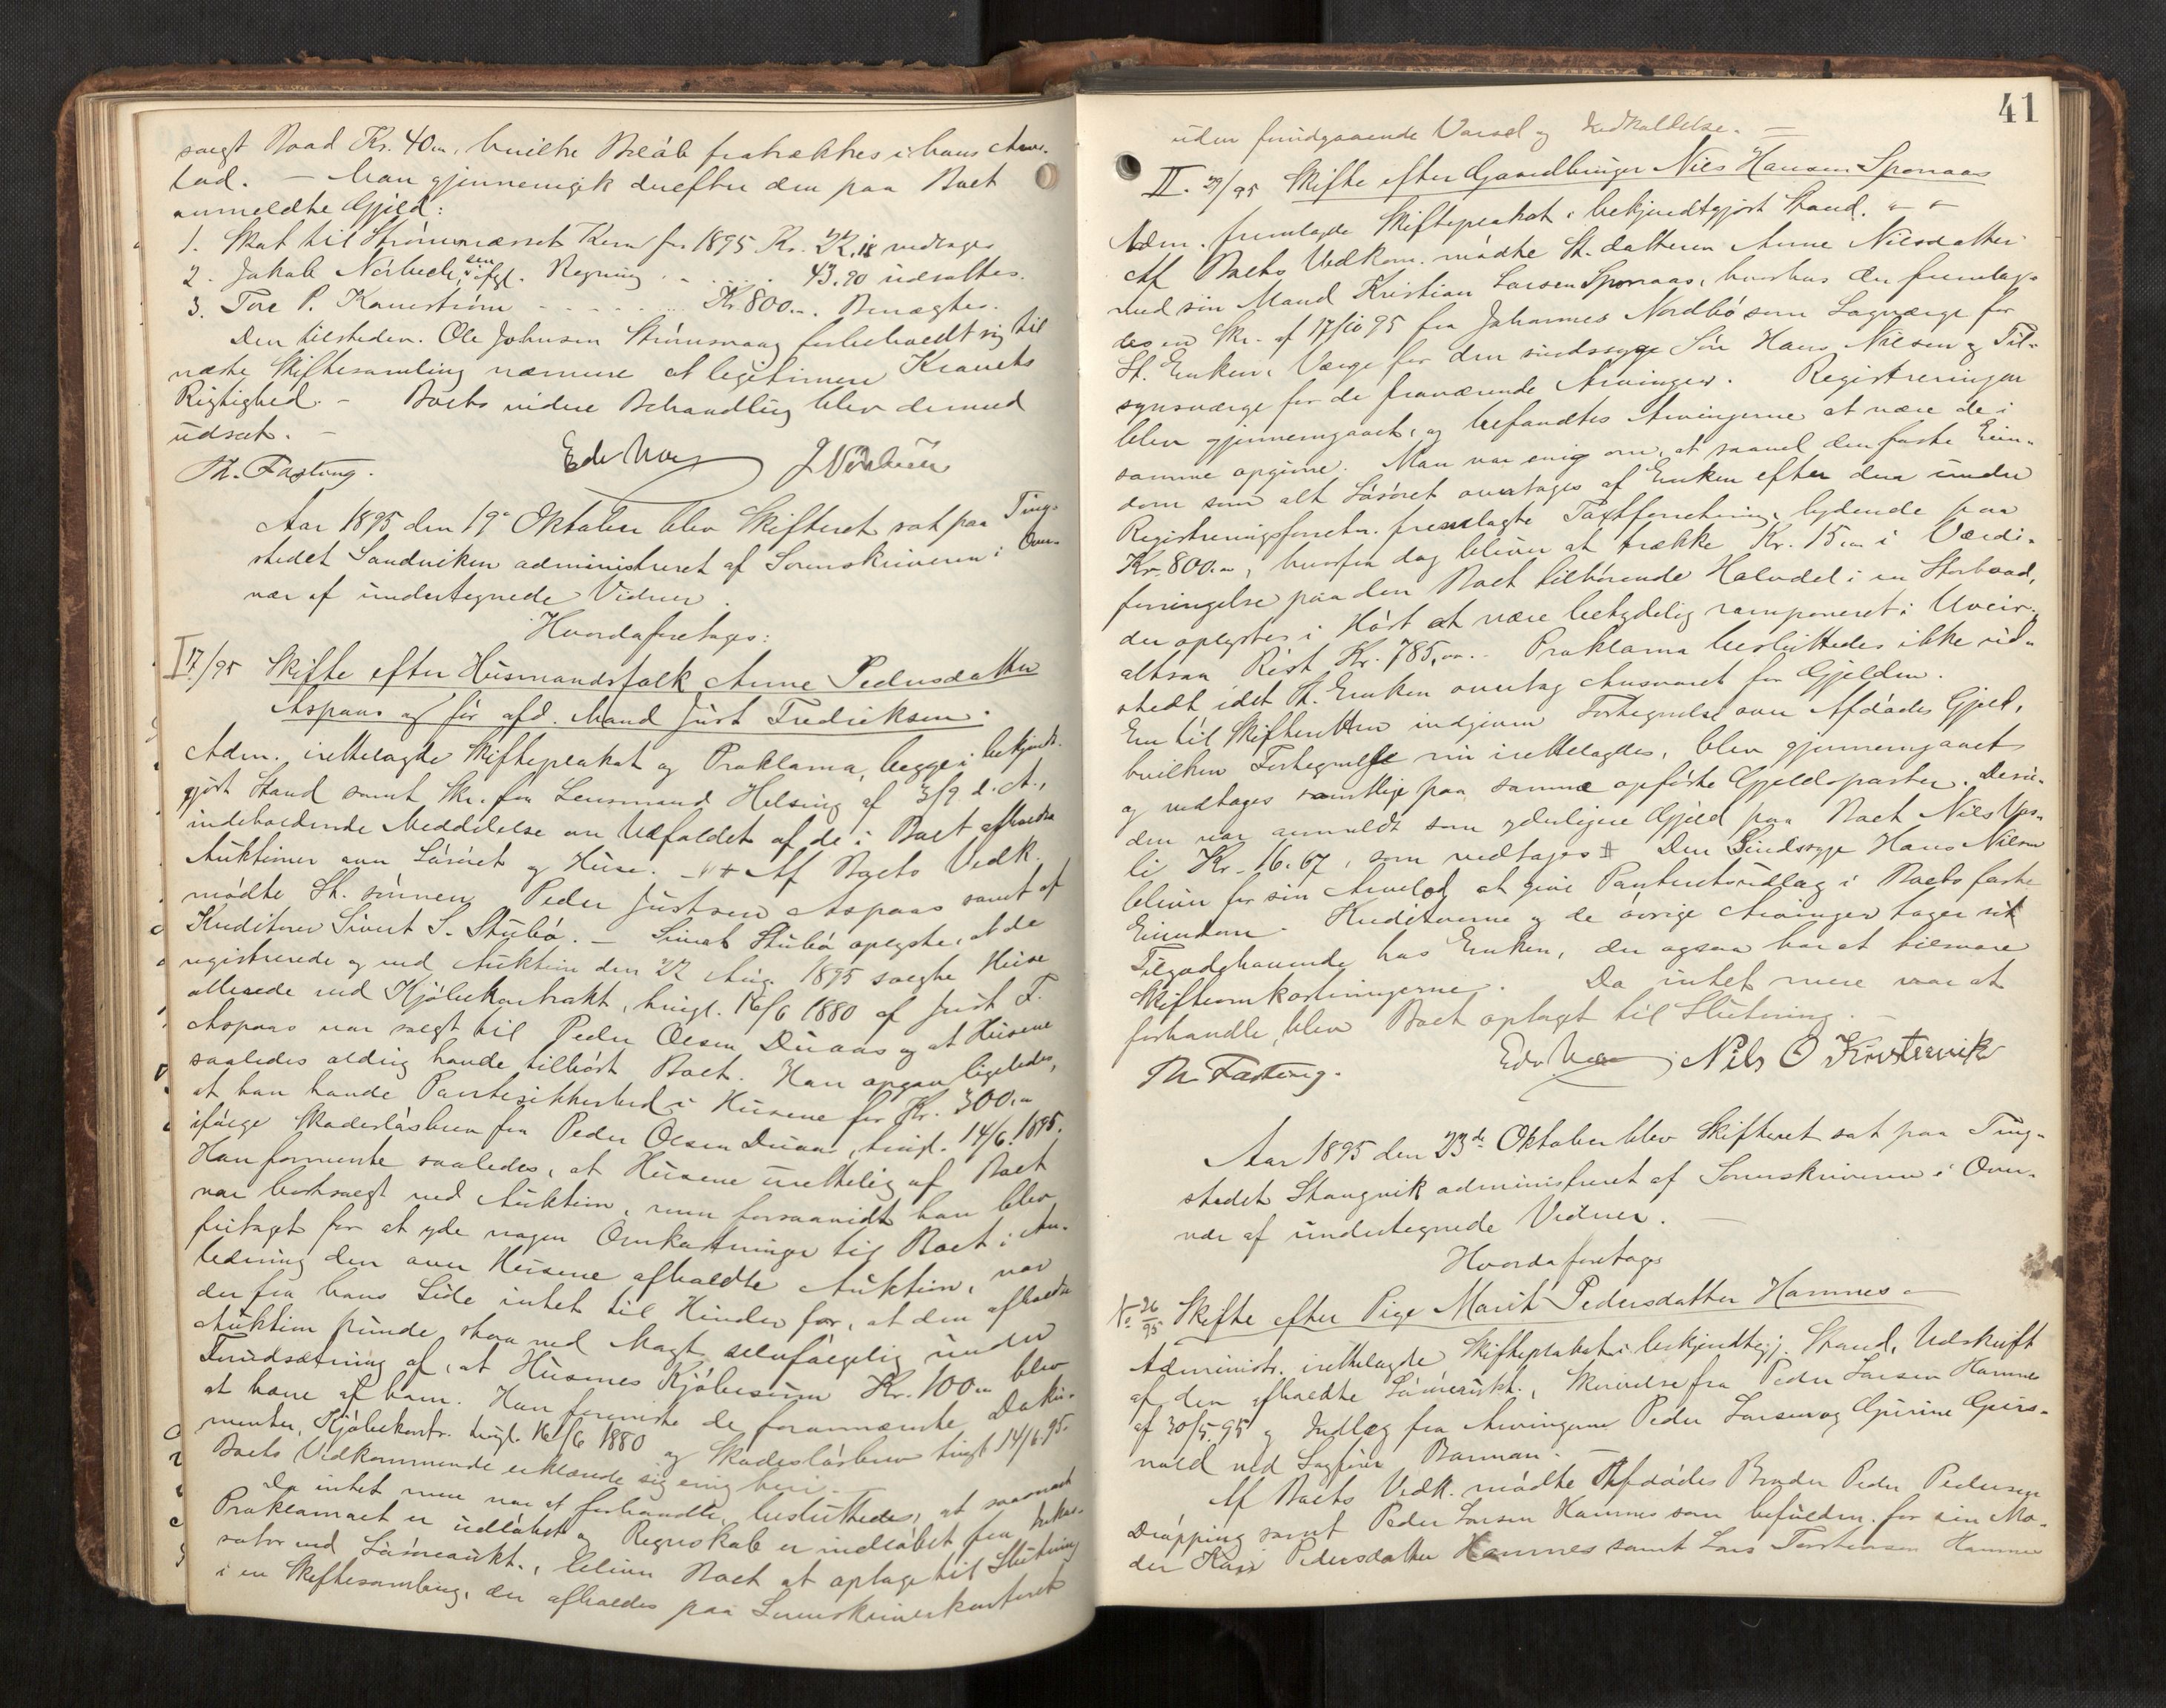 solgt Baad Kr. 40.,, hvilke Beløb fratrækkes i hans Arve-
lod. — Man gjennemgik derefter den paa Boet
anmeldte Gjæld:
1. Skat til Strømsnæsset Kom for 1895. Kr. 22.18 vedtages
2. Jakob Nørbech, sen. efgl. Regning . - . . . 43.90 udsattes.
3. Tore P. Kanestrøm - - - - . . . . Kr. 800.-. Benægtes.
Den tilstedev. Ole Johnsen Strømsvaag forbeholdt sig til
næste Skiftesamling nærmere at legitimere Kravets
Rigtighed. - Boets videre Behandling blev dermed
udsat. -
Th. Fasting.
Aar 1895 den 19de Oktober blev Skifteret sat paa Ting-
stedet Sandviken administreret af Sorenskriveren i Over-
vær af undertegnede Vidner.
Hvorda foretoges:
I 17/95 Skifte efter Husmandsfolk Anne Pedersdatter
Aspaas og før afd. Mand Just Fredriksen.
Adm. irettelagde Skifteplakat og Proklama, begge i bekjendt-
gjort Stand samt Skr. fra Lensmand Helsing af 3/9 d. A.,
indeholdende Meddelelse om Udfaldet af de i Boet afholdte
Auktioner over Løsøret og Huse. - Af Boets Vedk.
mødte St. sønnen Peder Justsen Aspaas samt af
Kreditorer Sivert S. Stubø. - Sivert Stubø oplyste, at de
registrerede og ved Auktion den 22 Aug. 1895 solgte Huse
allerede ved Kjøbekontrakt, tingl. 16/6 1880 af Just F.
Aspaas var solgt til Peder Olsen Duaas og at Husene
saaledes aldrig havde tilhørt Boet. Han opgav ligeledes,
at han havde Pantesikkerhed i Husene for Kr. 300.,,
ifølge Skadesløsbrev fra Peder Olsen Duaas, tingl. 14/6. 1895.
Han formente saaledes, at Husene urettelig af Boet
var bortsolgt ved Auktion, men forsaavidt han blev
fritaget for at yde nogen Omkostninger til Boet i An-
ledning den over Husene afholdte Auktion, var
der fra hans Side intet til Hinder for, at den afholdte
Auktion kunde staa ved Magt selvfølgelig under
Forudsætning af, at Husenes Kjøbesum Kr. 100.,, blev
at hæve af ham. Han foreviste de forannævnte Doku-
menter, Kjøbekontr. tingl. 16/6 1880 og Skadesløsbrev tingl 14/6.95.
Boets Vedkommende erklærede sig enig heri. -
Da intet mere var at forhandle, besluttedes, at saasnart
Proklamaet er udløbet og Regnskab er indløbet fra Inkas-
sator ved Løsøreaukt., bliver Boet at optage til Slutning
i en Skiftesamling, der afholdes paa Sorenskriverkontoret
41
uden forudgaaende Varsel og Indkaldelse. -
II. 29/95 Skifte efter Gaardbruger Nils Hansen Sponaas
Adm. fremlagde Skifteplakat i bekjendtgjort Stand. - -
Af Boets Vedkom. mødte St. datteren Anne Nilsdatter
med sin Mand Kristian Larsen Sponaas, hvorhos der fremlag-
des en Skr. af 17/10 95 fra Johannes Nordbø som Lagværge for
St. Enken, Værge for den sindssyge Søn Hans Nilsen og Til-
synsværge for de fraværende Arvinger. Registreringen
blev gjennemgaaet, og befandtes Arvingerne at være de i
samme opgivne. Man var enig om, at saavel den faste Eien-
dom som alt Løsøret overtages af Enken efter den under
Registreringsforretn. fremlagte Taxtforretning, lydende paa
Kr. 800.,,, hvorfra dog bliver at trække Kr. 15.,, i Værdi-
forringelse paa den Boet tilhørende Halvdel i en Storbaad,
der oplystes i Høst at være betydelig ramponeret i Uveir,
altsaa Rest Kr. 785,,,. - Proklama besluttedes ikke ud-
stedt idet St. Enken overtog Ansvaret for Gjælden.
En til Skifteretten indgiven Fortegnelse over Afdødes Gjæld,
hvilken Fortegnelse nu irettelagdes, blev gjennemgaaet
og vedtoges samtlige paa samme opførte Gjældsposter. Desu-
den var anmeldt som yderligere Gjæld paa Boet Nils Ups-
li Kr. 16.67, som vedtoges # Den Sindssyge Hans Nilsen
bliver for sin Arvelod at give Panteretsudlæg i Boets faste
Eiendom. Kreditorerne og de øvrige Arvinger tager sit
Tilgodehavende hos Enken, der ogsaa har at tilsvare
Skifteomkostningerne. Da intet mere var at
forhandle, blev Boet optaget til Slutning. -
Th. Fasting.
Aar 1895 den 23de Oktober blev Skifteret sat paa Ting-
stedet Stangvik administreret af Sorenskriveren i Over-
vær af undertegnede Vidner. -
Hvorda foretoges
No 26/95 Skifte efter Pige Marit Pedersdatter Hamnes -
Administr. irettelagde Skifteplakat i bekjendtgj. Stand, Udskrift
af den afholdte Løsøreaukt., Skrivelse fra Peder Larsen Hamnes
af 30/5.95 og Indlæg fra Arvingerne Peder Larsen og Gurine Guris-
vold ved Sagfører Barman.
Af Boets Vedk. mødte Afdødes Broder Peder Pedersen
Drøpping samt Peder Larsen Hamnes som befuldm. for sin Mo-
der Kari Pedersdatter Hamnes samt Lars Torstensen Hamnes